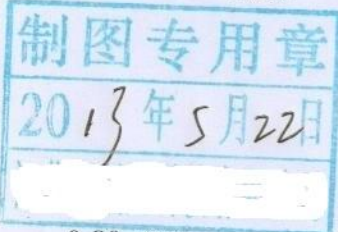 制图专用章
2013年5月22日